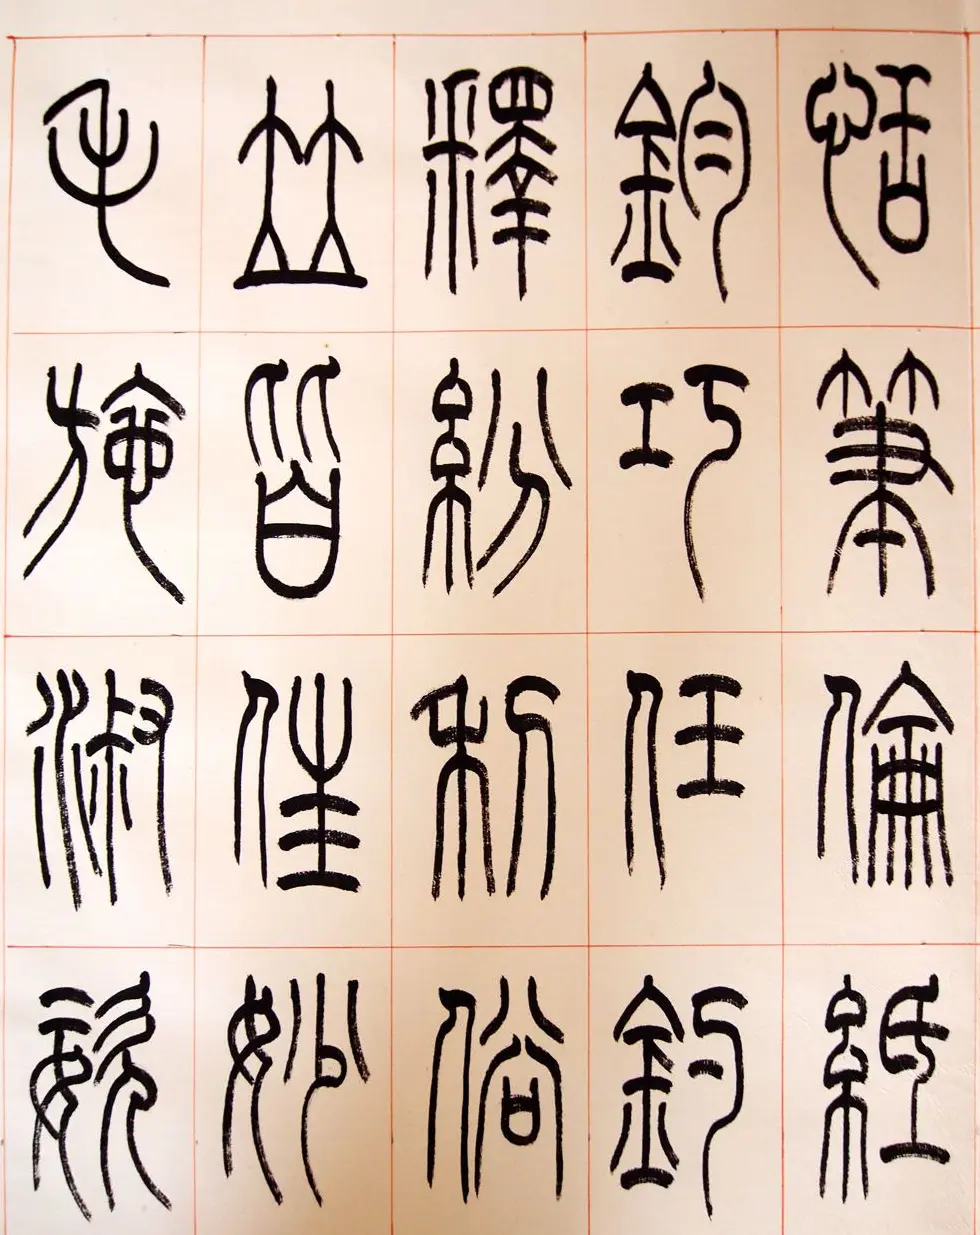 恬筆倫紙
鈞巧任釣
釋紛利俗
竝皆佳妙
毛施淑姿